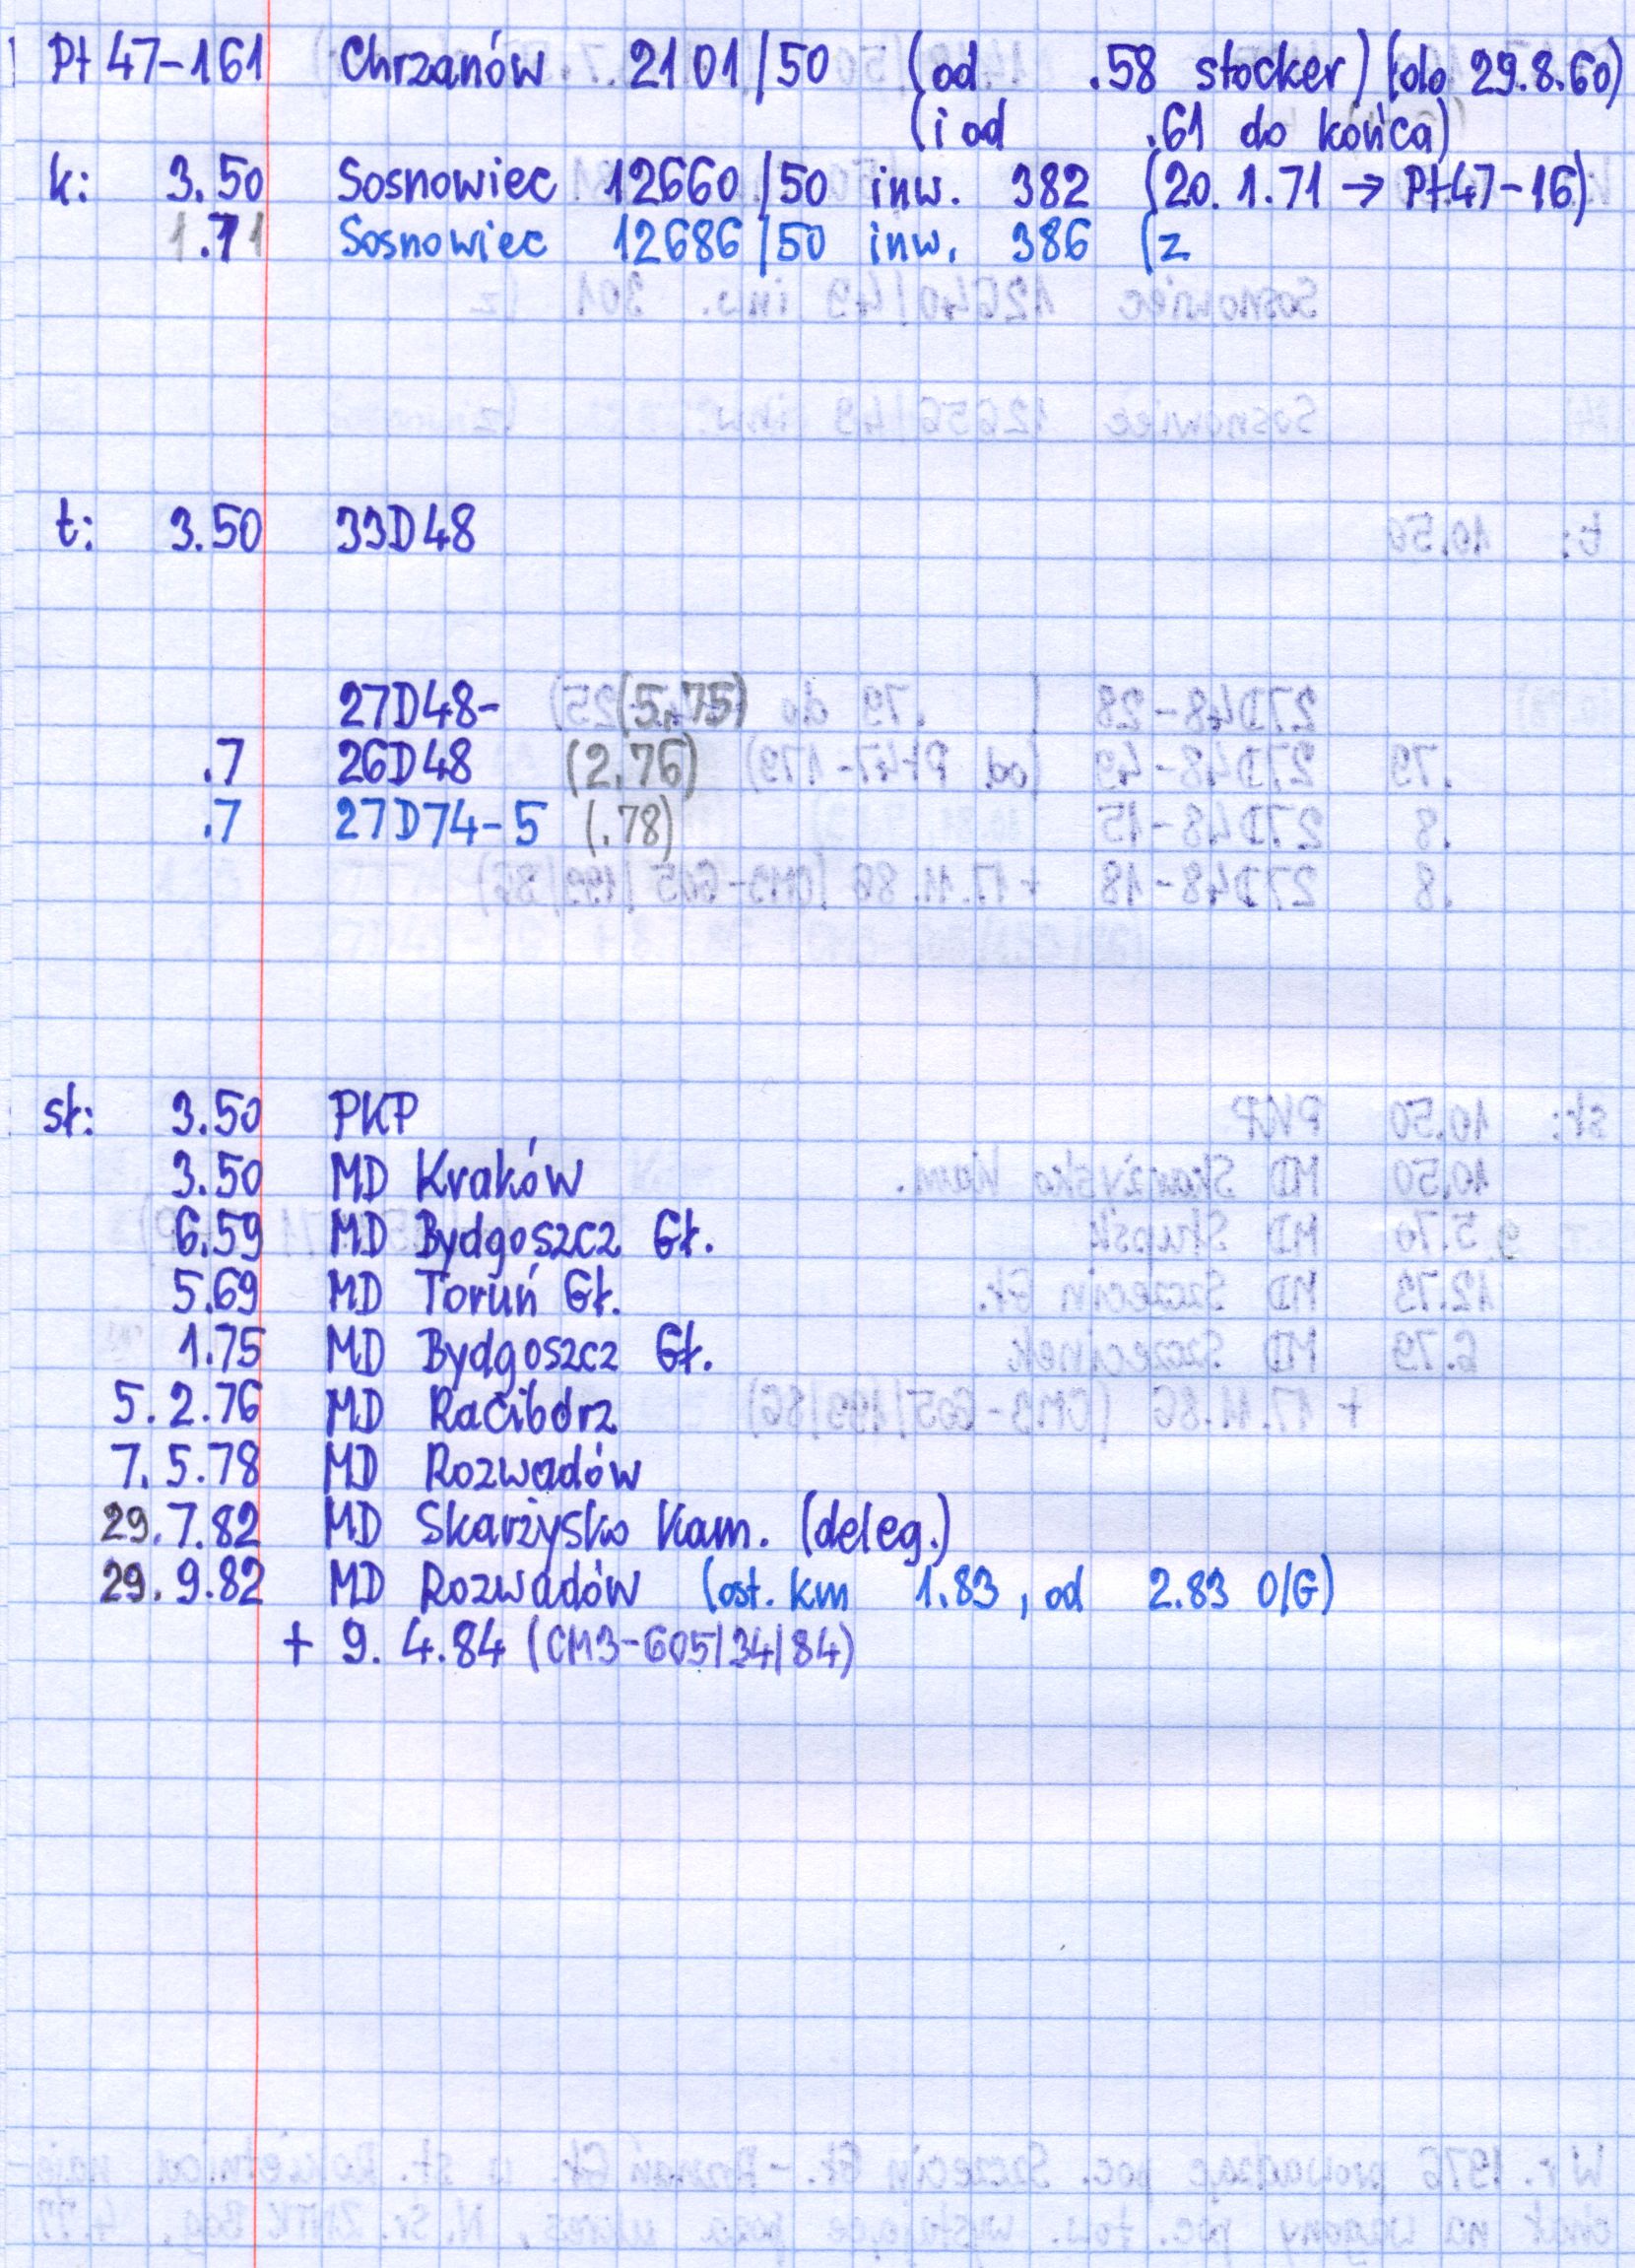 Pt 47-161 Chrzanów 2101/50 (od .58 stocker) (do 29.8.60)
(i od .61 do końca)
k: 3.50 Sosnowiec 12660/50 inw. 382 (20.1.71 → Pt47-16)
1.71 Sosnowiec 12686/50 inw. 386 (z
t: 3.50 33D48
27D48- (5.75)
.7 26D48 (2.76)
.7 27D74-5 (.78)
st: 3.50 PKP
3.50 MD Kraków
6.59 MD Bydgoszcz Gł.
5.69 MD Toruń Gł.
1.75 MD Bydgoszcz Gł.
5.2.76 MD Racibórz
7.5.78 MD Rozwadów
29.7.82 MD Skarżysko Kam. (deleg.)
29.9.82 MD Rozwadów (ost. km 1.83, od 2.83 O/G)
+ 9.4.84 (CM3-605/34/84)